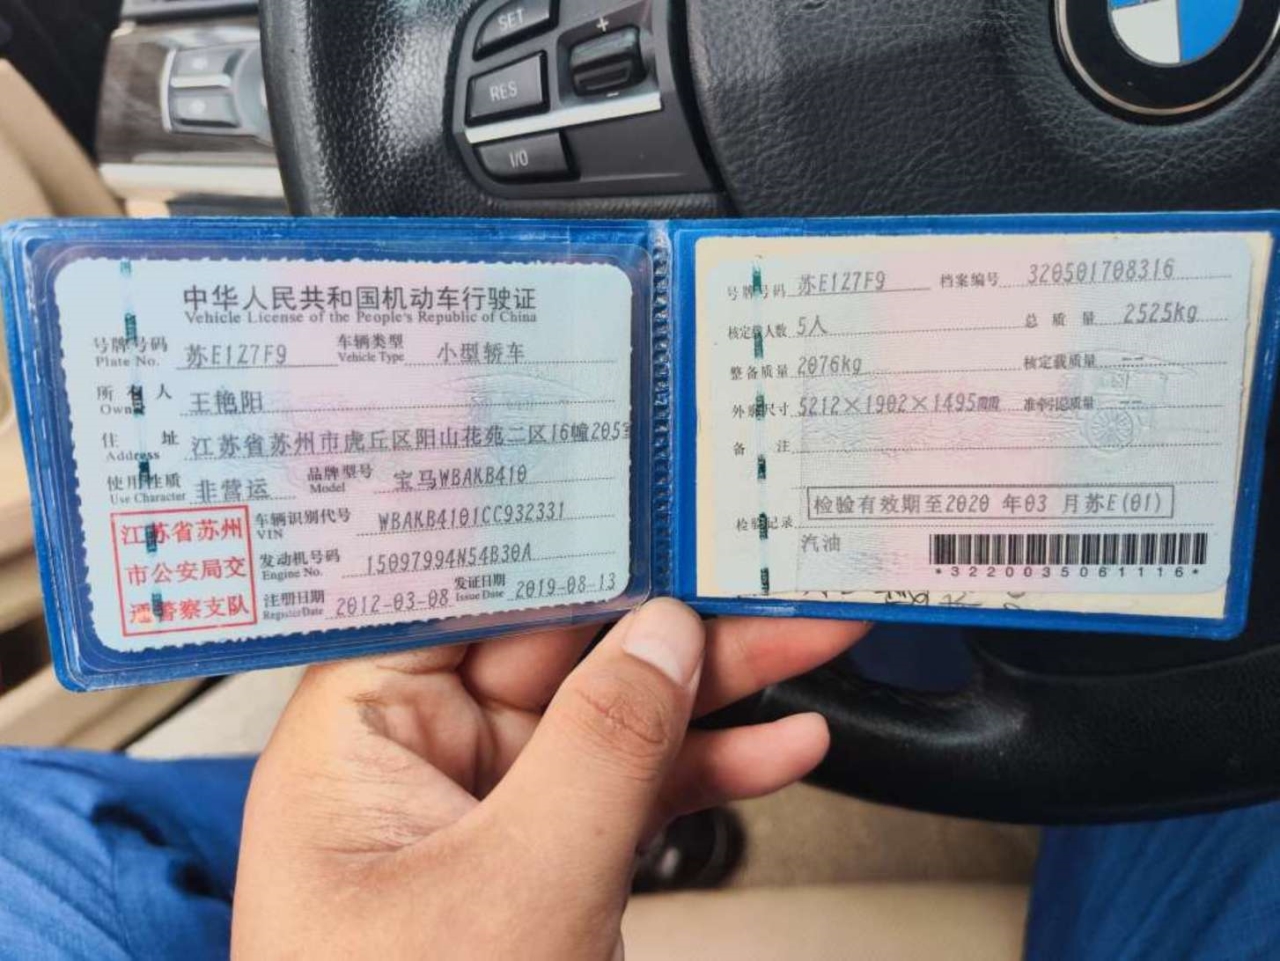 SET
+
RES
-
I/O
中华人民共和国机动车行驶证
Vehicle License of the People's Republic of China
号牌号码 苏E1Z7F9 车辆类型 小型轿车
Plate No. Vehicle Type
所有人 王艳阳
Owner
住址 江苏省苏州市虎丘区阳山花苑二区16幢205室
Address
使用性质 非营运 品牌型号 宝马WBAKB410
Use Character Model
江苏省苏州
市公安局交
通警察支队
车辆识别代号 WBAKB4101CC932331
VIN
发动机号码 15097994N54B30A
Engine No.
注册日期 2012-03-08 发证日期 2019-08-13
Register Date Issue Date
号牌号码 苏E1Z7F9 档案编号 320501708316
核定载人数 5人 总质量 2525kg
整备质量 2076kg 核定载质量 --
外廓尺寸 5212×1902×1495mm 准牵引总质量 --
备注
检验有效期至2020年03月苏E(01)
检验记录
汽油
*3220035061116*